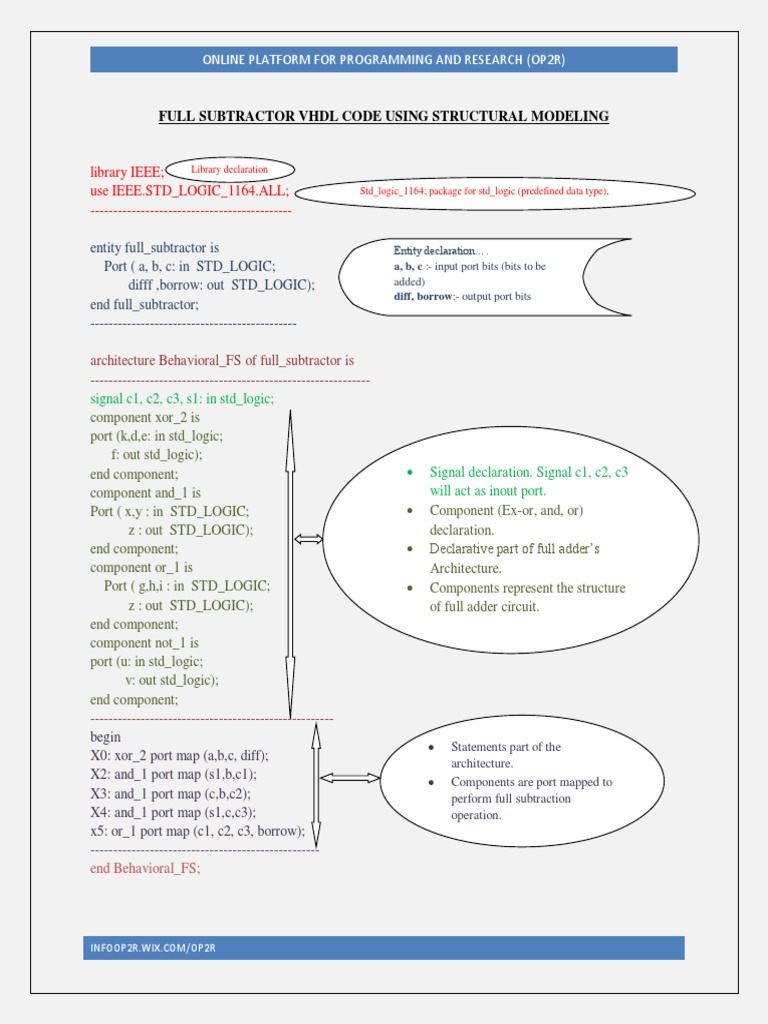 ONLINE PLATFORM FOR PROGRAMMING AND RESEARCH (OP2R)
FULL SUBTRACTOR VHDL CODE USING STRUCTURAL MODELING
library IEEE;
Library declaration
use IEEE.STD_LOGIC_1164.ALL;
Std_logic_1164; package for std_logic (predefined data type).
--------------------------------------------
entity full_subtractor is
Port ( a, b, c: in STD_LOGIC;
difff ,borrow: out STD_LOGIC);
end full_subtractor;
---------------------------------------------
Entity declaration....
a, b, c :- input port bits (bits to be
added)
diff, borrow:- output port bits
architecture Behavioral_FS of full_subtractor is
-------------------------------------------------------------
signal c1, c2, c3, s1: in std_logic;
component xor_2 is
port (k,d,e: in std_logic;
f: out std_logic);
end component;
component and_1 is
Port ( x,y : in STD_LOGIC;
z : out STD_LOGIC);
end component;
component or_1 is
Port ( g,h,i : in STD_LOGIC;
z : out STD_LOGIC);
end component;
component not_1 is
port (u: in std_logic;
v: out std_logic);
end component;
• Signal declaration. Signal c1, c2, c3
will act as inout port.
• Component (Ex-or, and, or)
declaration.
• Declarative part of full adder's
Architecture.
• Components represent the structure
of full adder circuit.
-----------------------------------------------------
begin
X0: xor_2 port map (a,b,c, diff);
X2: and_1 port map (s1,b,c1);
X3: and_1 port map (c,b,c2);
X4: and_1 port map (s1,c,c3);
x5: or_1 port map (c1, c2, c3, borrow);
• Statements part of the
architecture.
• Components are port mapped to
perform full subtraction
operation.
--------------------------------------------------
end Behavioral_FS;
INFOOP2R.WIX.COM/OP2R